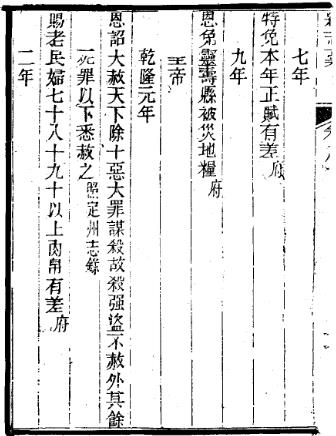 七年
特免本年正賦有差府
九年
恩免靈壽縣被災地糧府
皇帝
乾隆元年
恩詔大赦天下除十惡大罪謀殺故殺强盜不赦外其餘
死罪以下悉赦之照定州志錄
賜老民婦七十八十九十以上肉帛有差府
二年